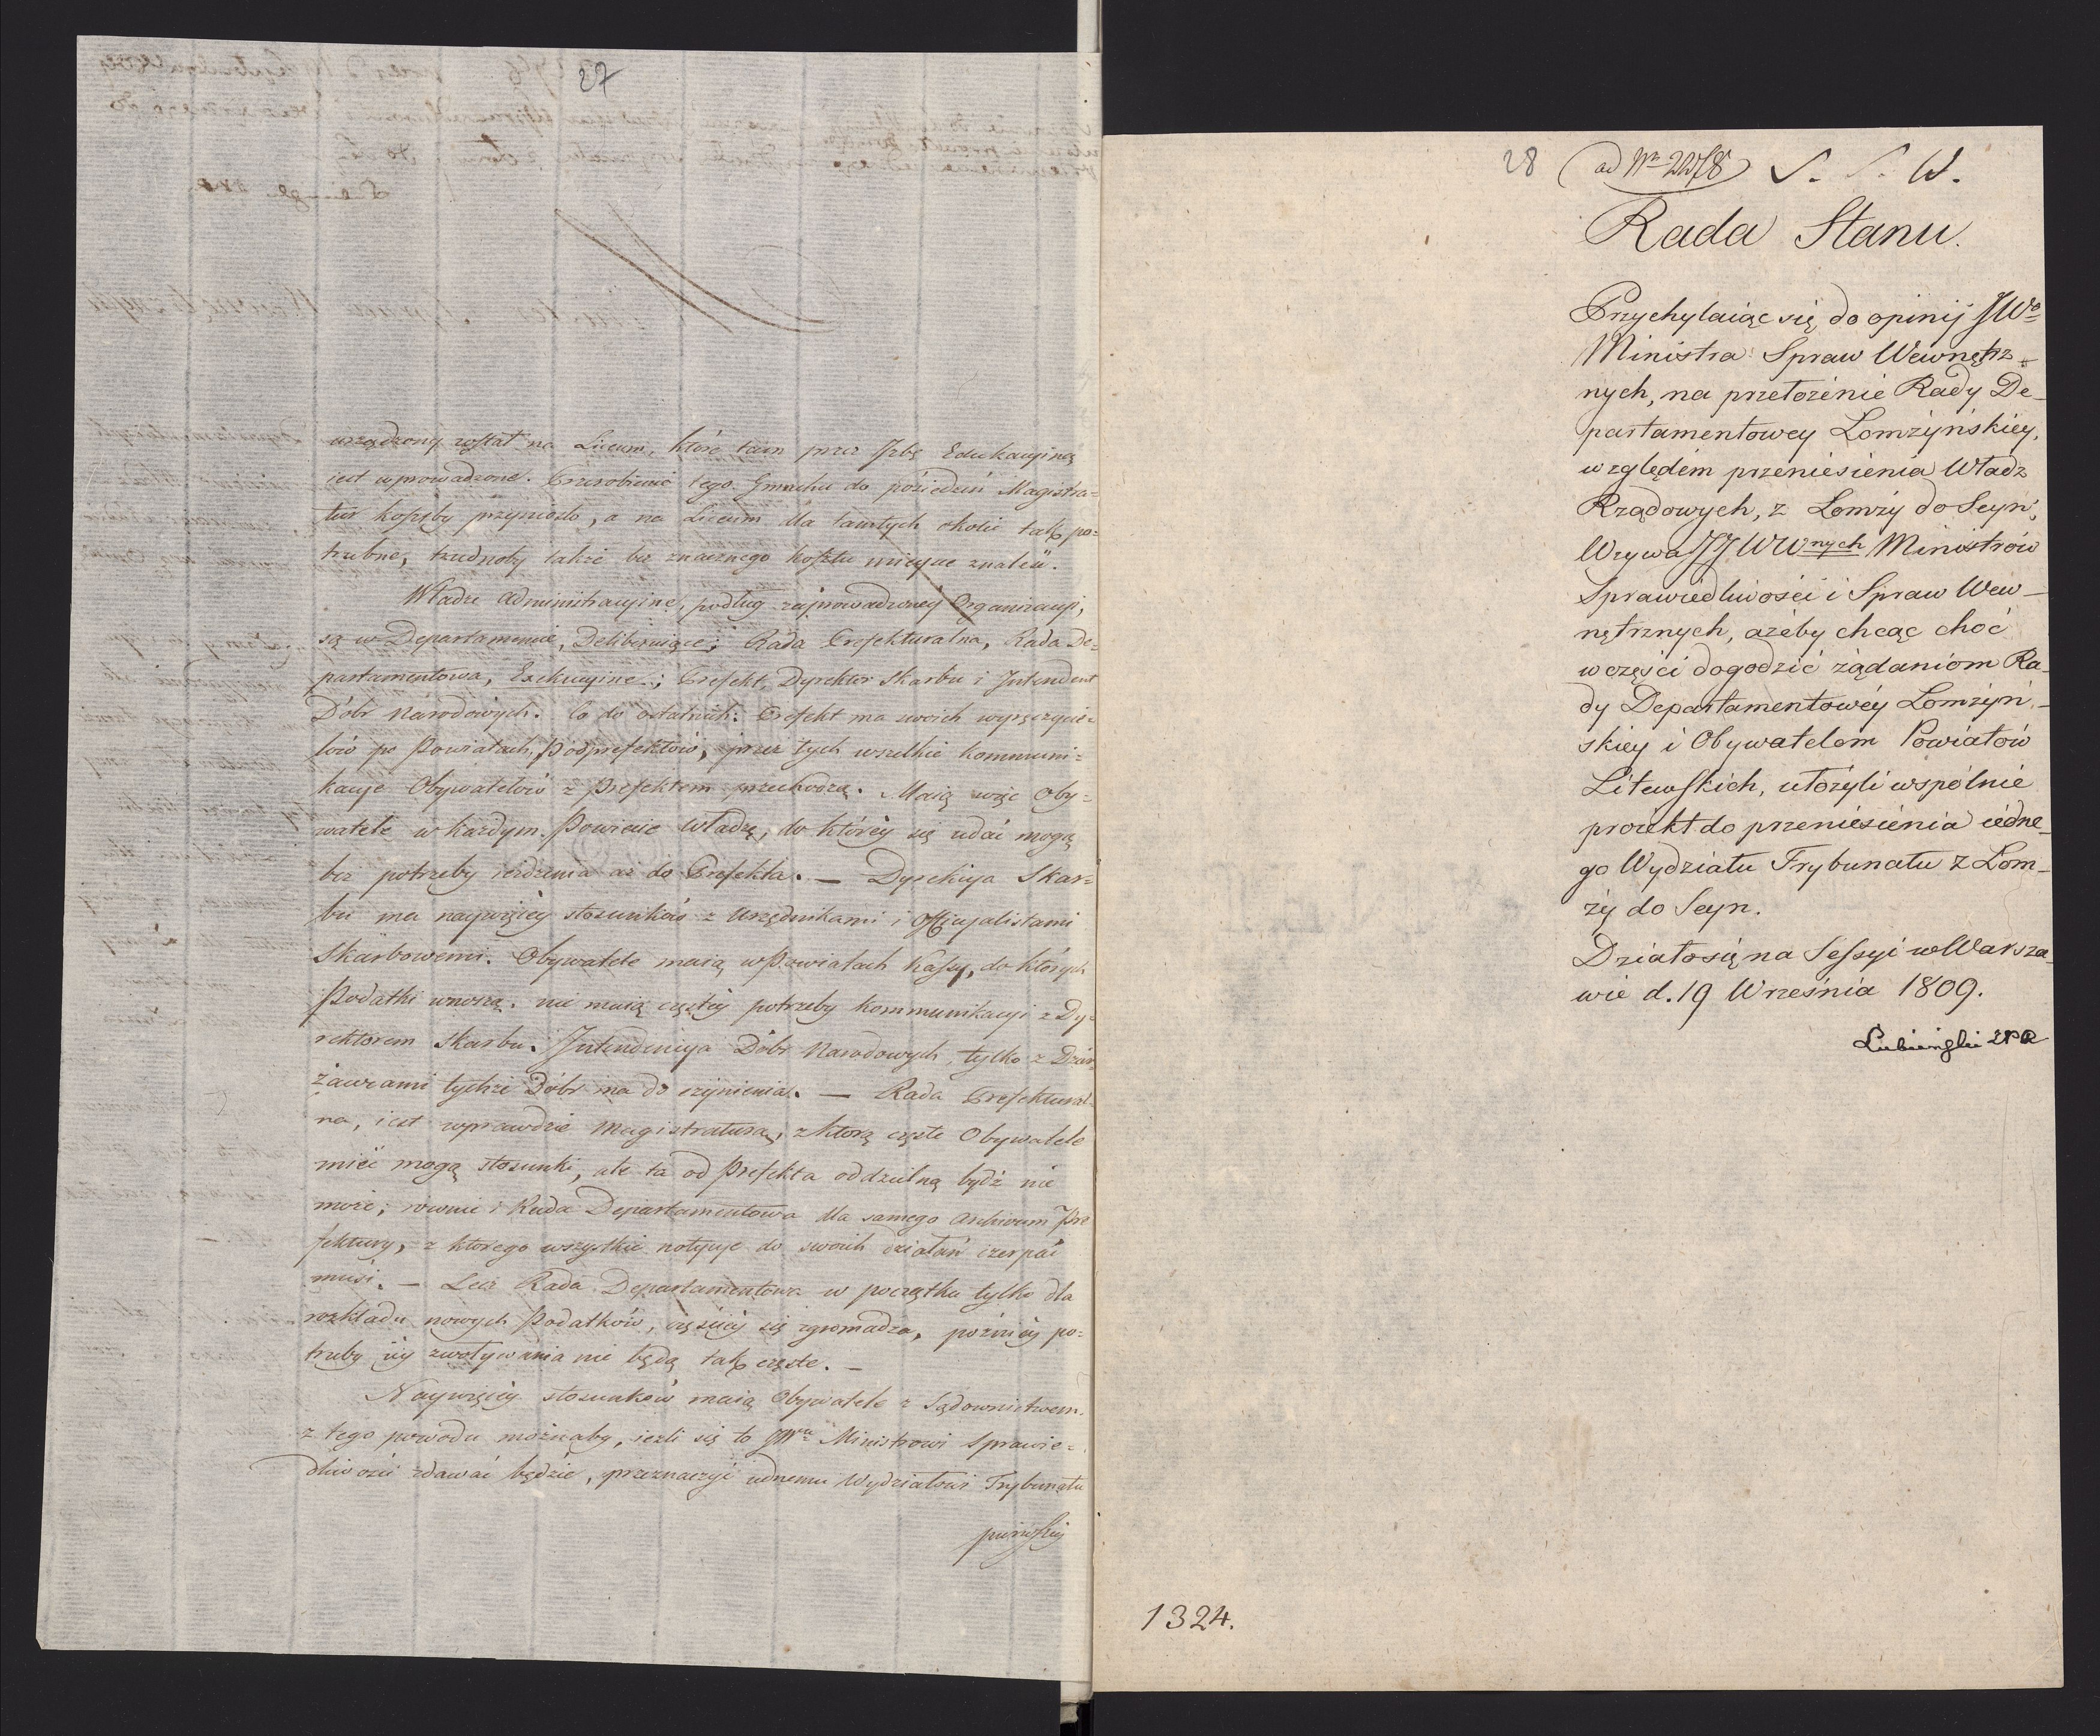 27
urządzony został na Liceum, które tam przez Jzbę Edukacyiną
iest wprowadzone. Przerobienie tego Gmachu do posiedzeń Magistra=
tur koszby przyniosło, a na Liceum dla tamtych okolic tak po=
trzebne, trudnoby także bez znacznego kosztu mieysce znaleść.
Władze administracyine, podług zaprowadzoney Organizacyi,
są w Departamencie, Deliberuiące; Rada Prefekturalna, Rada De=
partamentowa, Exekucyine; Prefekt, Dyrektor Skarbu i Jntendent
Dóbr Narodowych. Co do ostatnich: Prefekt ma swoich wyręczycie=
lów po Powiatach, Podprefektów, przez tych wszelkie kommuni=
kacye Obywatelów z Prefektem przechodzą. Maią więc Oby=
watele w każdym Powiecie władzę, do którey się udać mogą
bez potrzeby ieżdżenia aż do Prefekta. — Dyrekcya Skar=
bu ma naywięcey stosunków z Urzędnikami i Officyalistami
Skarbowemi. Obywatele maią w Powiatach Kassy, do których
Podatki wnoszą. nie maią częstey potrzeby kommunikacyi z Dy=
rektorem Skarbu. Jntendencya Dóbr Narodowych, tylko z Dzier=
żawcami tychże Dóbr ma do czynienia. — Rada Prefektural=
na, iest wprawdzie Magistraturą, z którą częste Obywatele
mieć mogą stosunki, ale ta od Prefekta oddzielną bydź nie
może; rownie i Rada Departamentowa dla samego Archivum Pre
fektury, z którego wszystkie notycye do swoich działań czerpać
musi. — Lecz Rada Departamentowa w początku tylko dla
rozkładu nowych Podatków, częściey się zgromadza, poźniey po=
trzeby iey zwoływania nie będą tak częste. —
Naywięcey stosunków maią Obywatele z Sądownictwem.
z tego powodu możnaby, ieżli się to JWmu Ministrowi Sprawie=
dliwości zdawać będzie, przeznaczyć iednemu Wydziałowi Trybunału
28
ad Nm
S. S. W.
Rada Stanu.
Przychylaiąc się do opinij JWo
Ministra Spraw Wewnętrz=
nych, na przełożenie Rady De_
partamentowey Lomżyńskiey,
względem przeniesienia Władz
Rządowych, z Lomży do Seyn,
Wzywa JJWW nych Ministrów
Sprawiedliwości i Spraw Wew_
nętrznych, ażeby chcąc choć
w części dogodzić żądaniom Ra_
dy Departamentowéy Lomżyń_
skiey i Obywatelom Powiatów
Litewskich, ułożyli wspólnie
proiekt do przeniesienia iedne_
go Wydziału Trybunału z Lom_
ży do Seyn.
Działo się na Sessyi w Warsza_
wie d. 19 Września 1809.
Lubieński
1324.